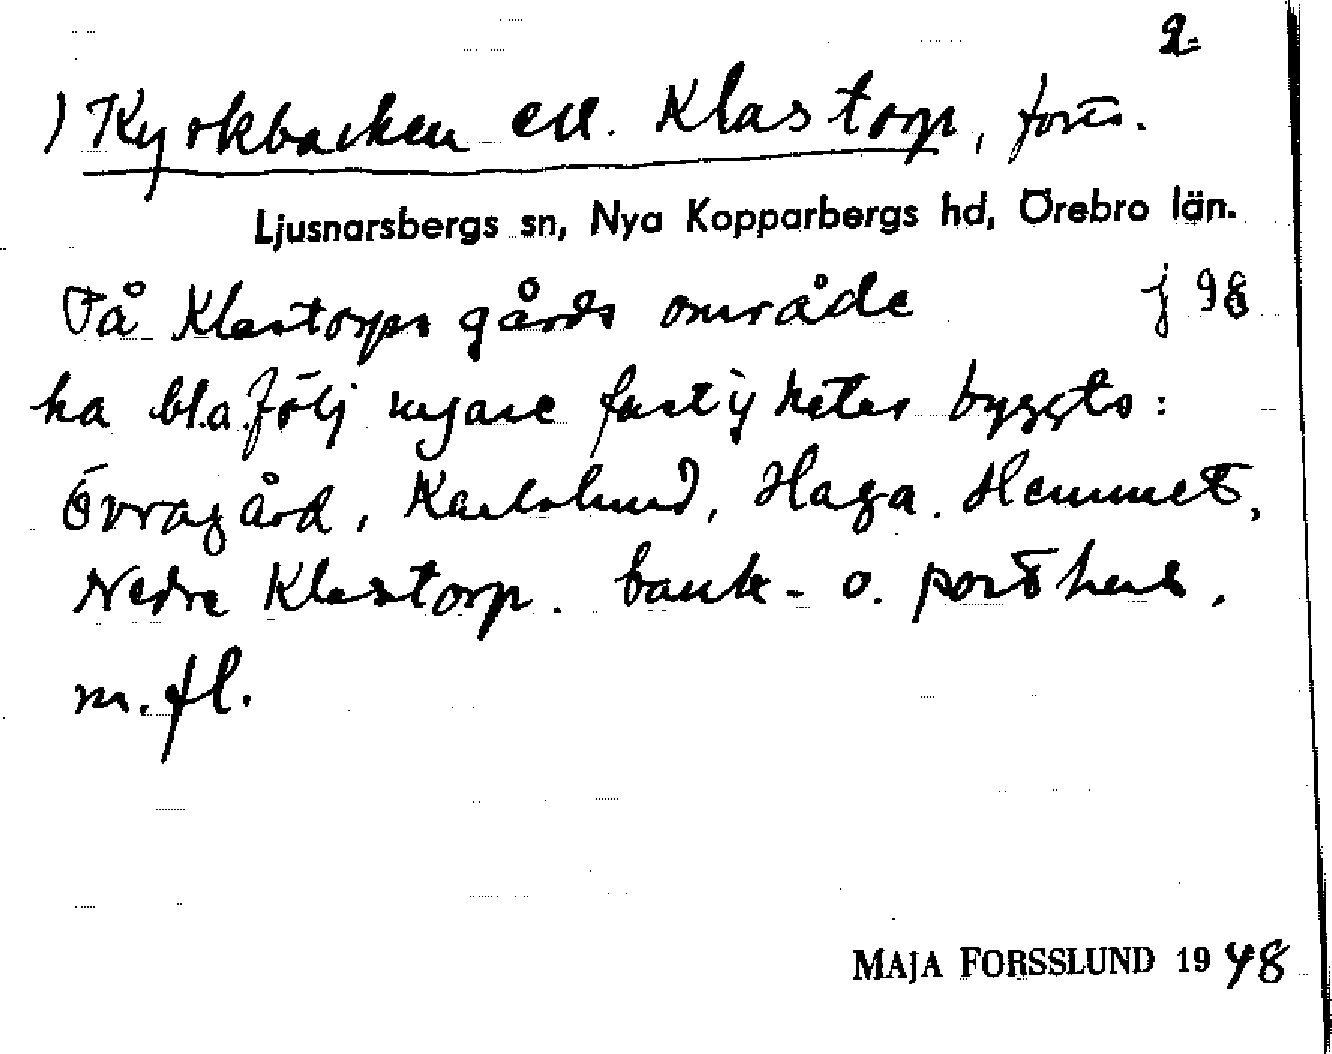 2.
) Kyrkbacken ell. Klastorp, forts.
Ljusnarsbergs sn, Nya Kopparbergs hd, Örebro län.
På Klastorps gårds område f 98
ha bl.a. följ nyare fastigheter byggts:
Övragård, Karlslund, Haga, Hemmet,
Nedre Klastorp. bank- o. posthus,
m.fl.
MAJA FORSSLUND 1948